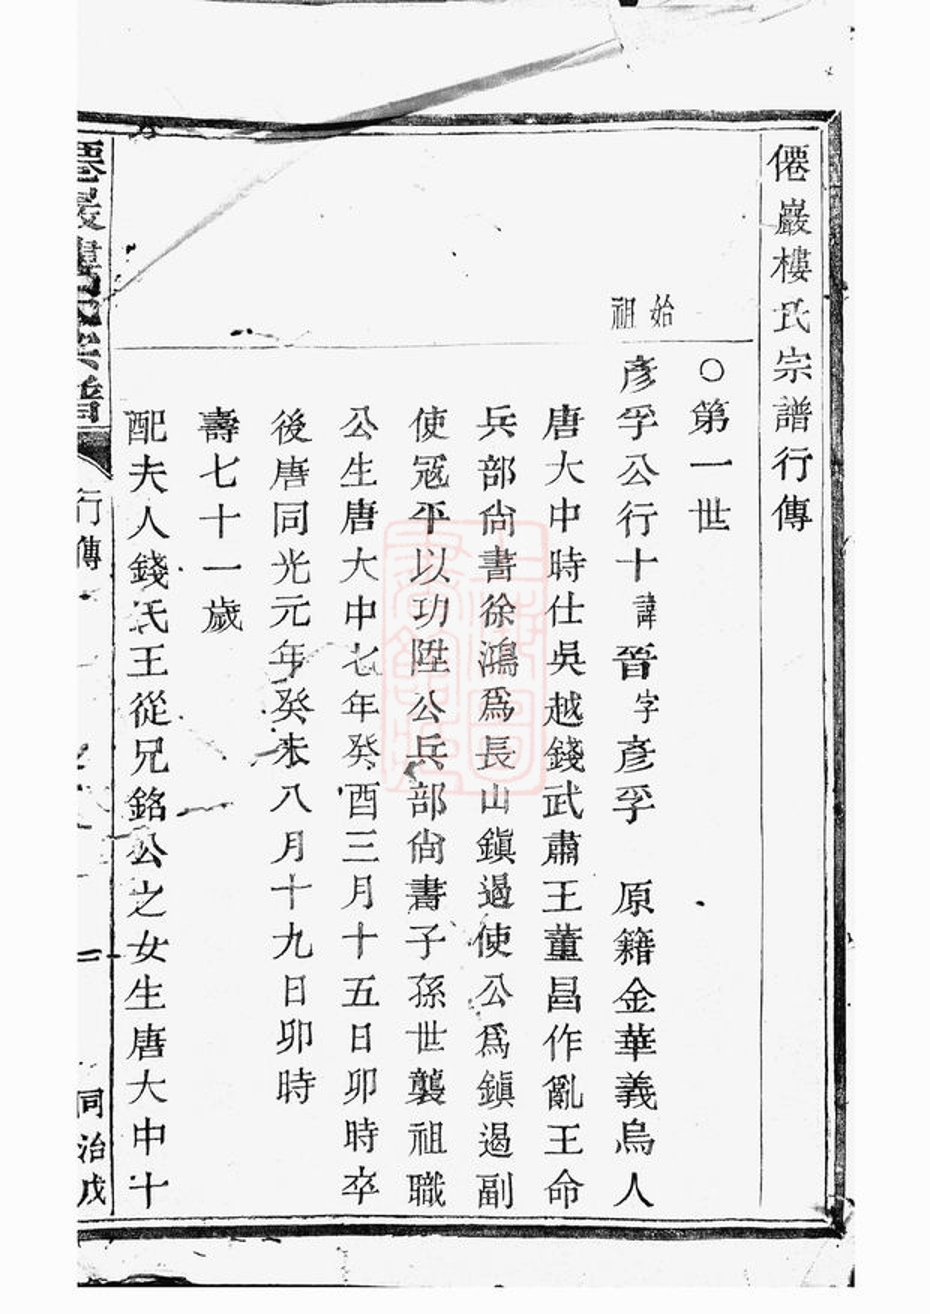 僊巖樓氏宗譜行傳
○第一世
始祖
彥孚公行十諱晉字彥孚 原籍金華義烏人
唐大中時仕吳越錢武肅王董昌作亂王命
兵部尙書徐鴻爲長山鎮遏使公爲鎮遏副
使寇平以功陞公兵部尙書子孫世襲祖職
公生唐大中七年癸酉三月十五日卯時卒
後唐同光元年癸未八月十九日卯時
壽七十一歲
配夫人錢氏王從兄銘公之女生唐大中十
行傳
一
同治戊